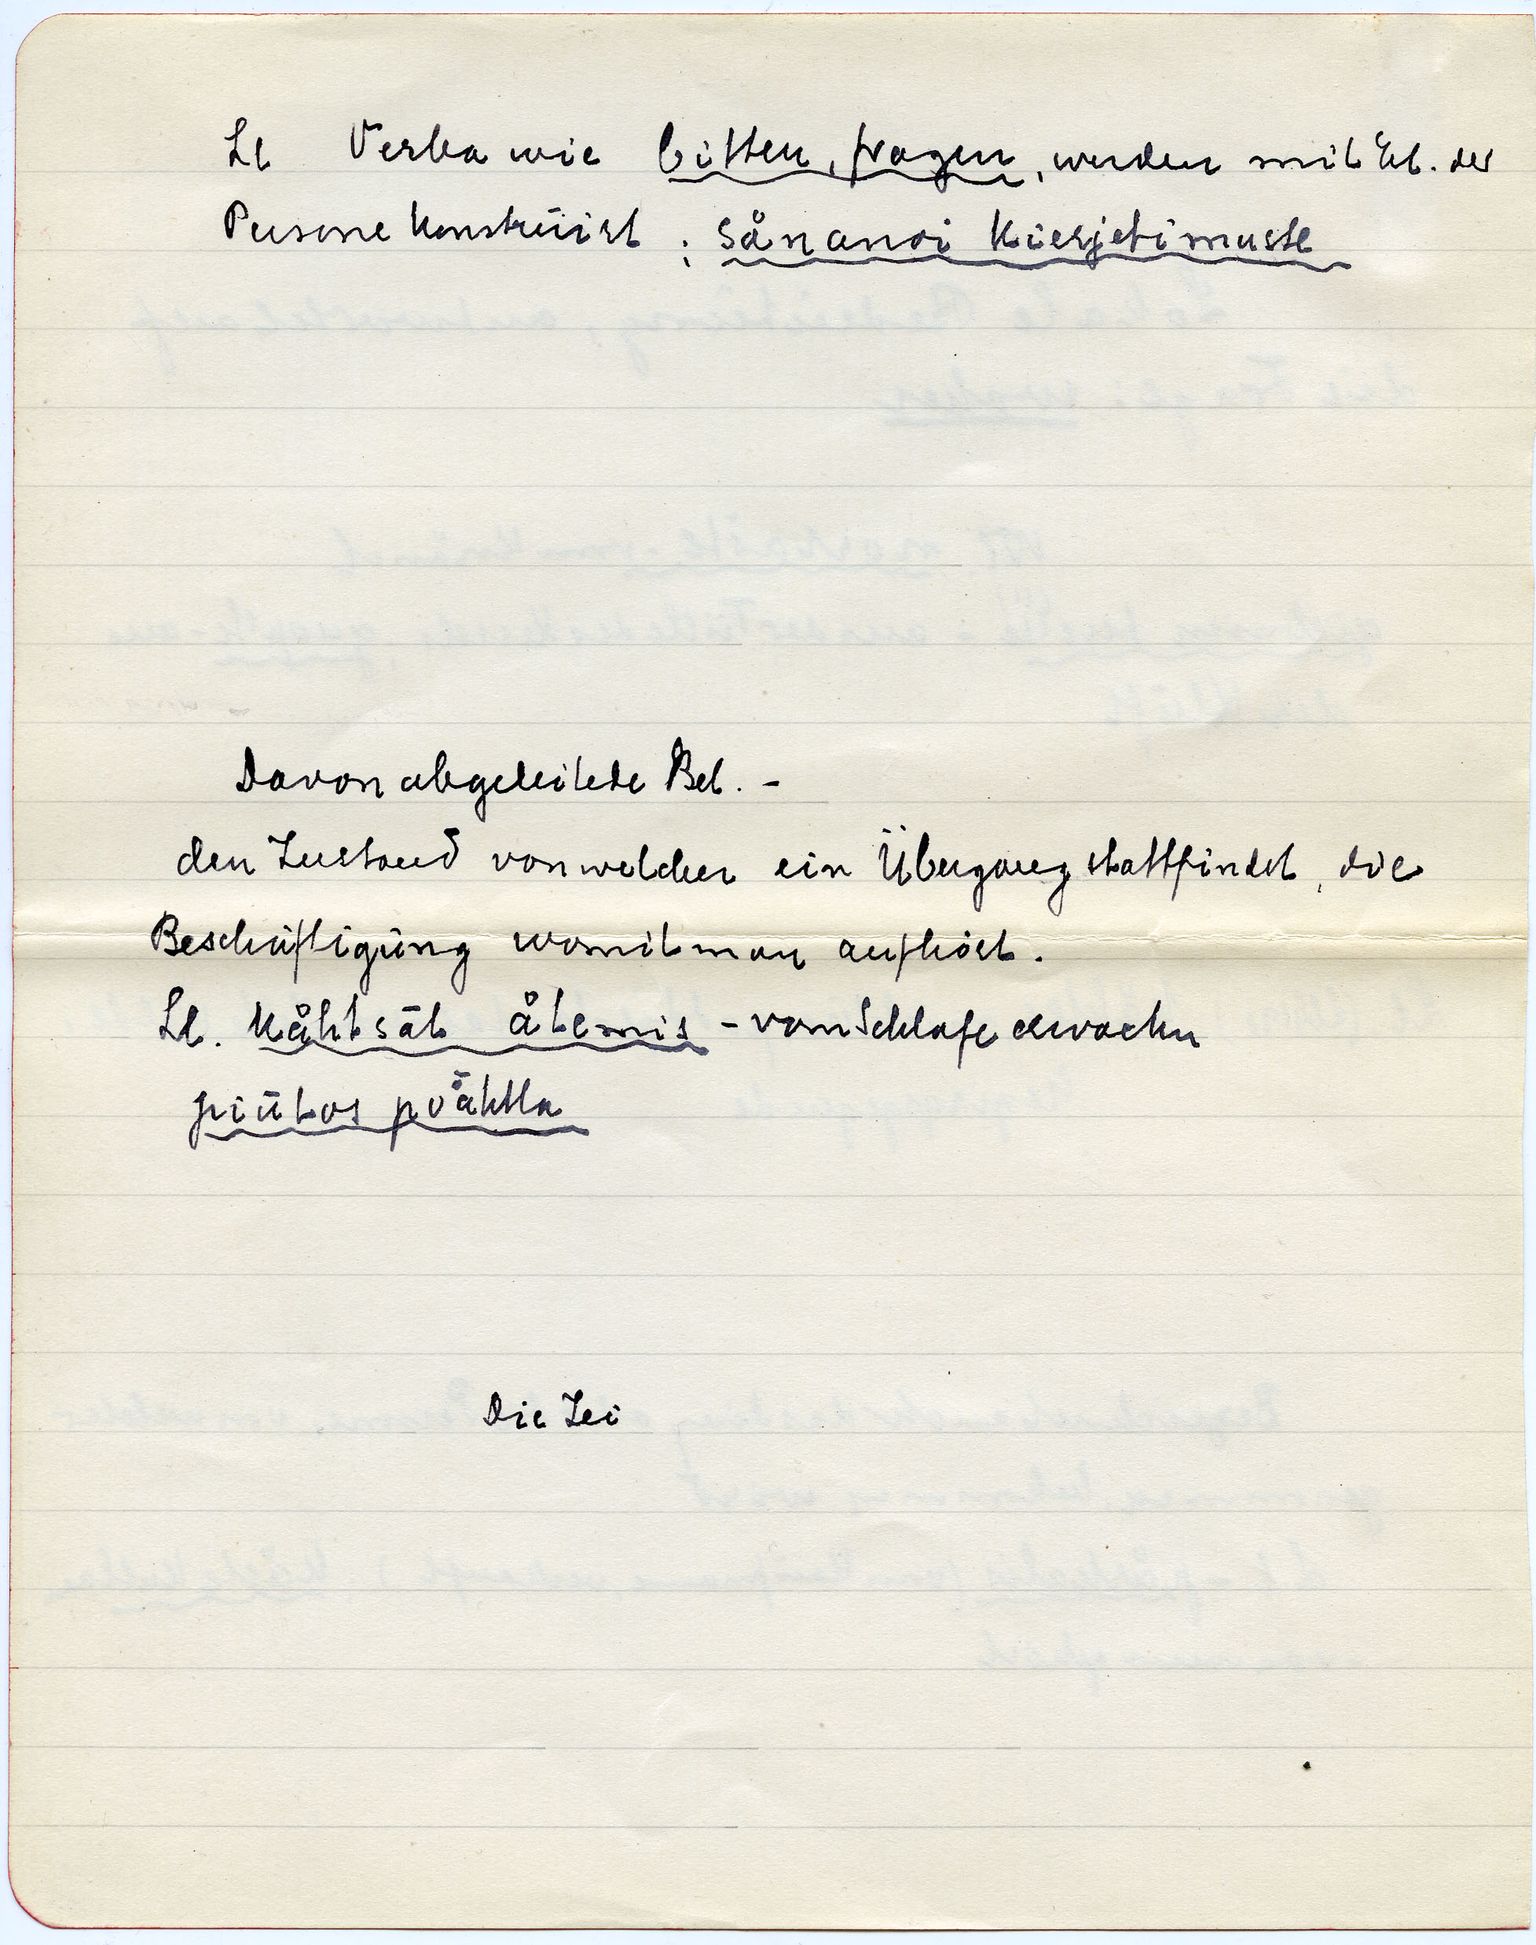 Ll Verba wie bitten, fragen, werden mit El. der
Persone konstruirt : sånanoi kierjetimuste
Davon abgeleitede Bet. -
den Zustand von welcher ein Übergang stattfindet, die
Beschäftigung womit man aufhört.
Ll. kåhtsāt åtemis - vom Schlafe erwachn
piūtos pvåhtta
Die Zei